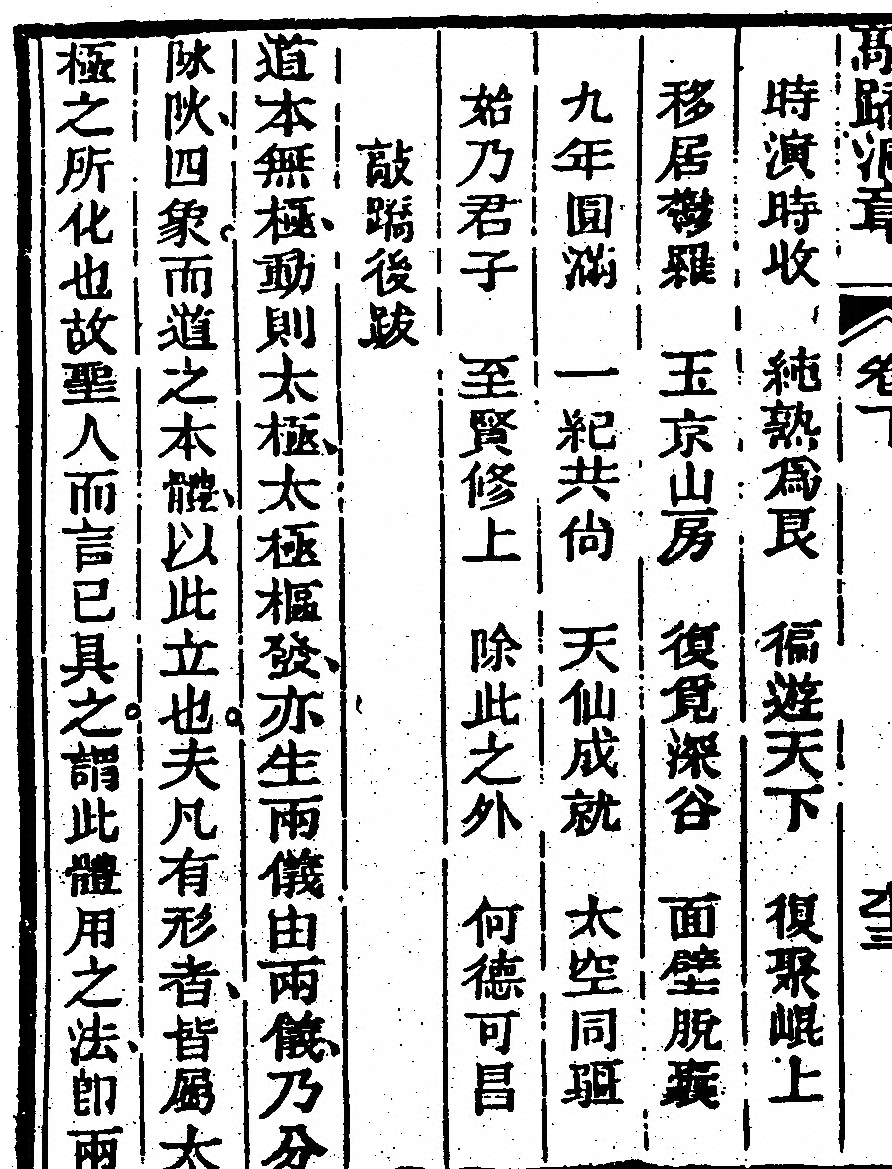 敲蹻洞章 卷下
時演時收 純熟爲艮 徧遊天下 復聚崐上
移居鬱羅 玉京山房 復覓深谷 面壁脫囊
九年圓滿 一紀共尙 天仙成就 太空同驅
始乃君子 至賢修上 除此之外 何德可昌
敲蹻後跋
道本無極動則太極太極樞發亦生兩儀由兩儀乃分
陎㶼四象而道之本體以此立也夫凡有形者皆屬太
極之所化也故聖人而言已具之謂此體用之法卽兩